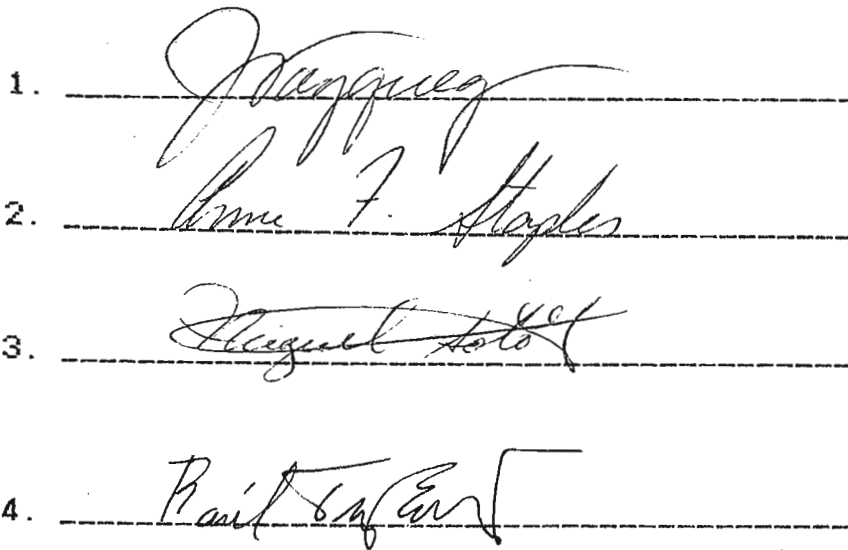 1. J Vazquez
2. Anne F. Staples
3. Miguel Soto
4. Raúl